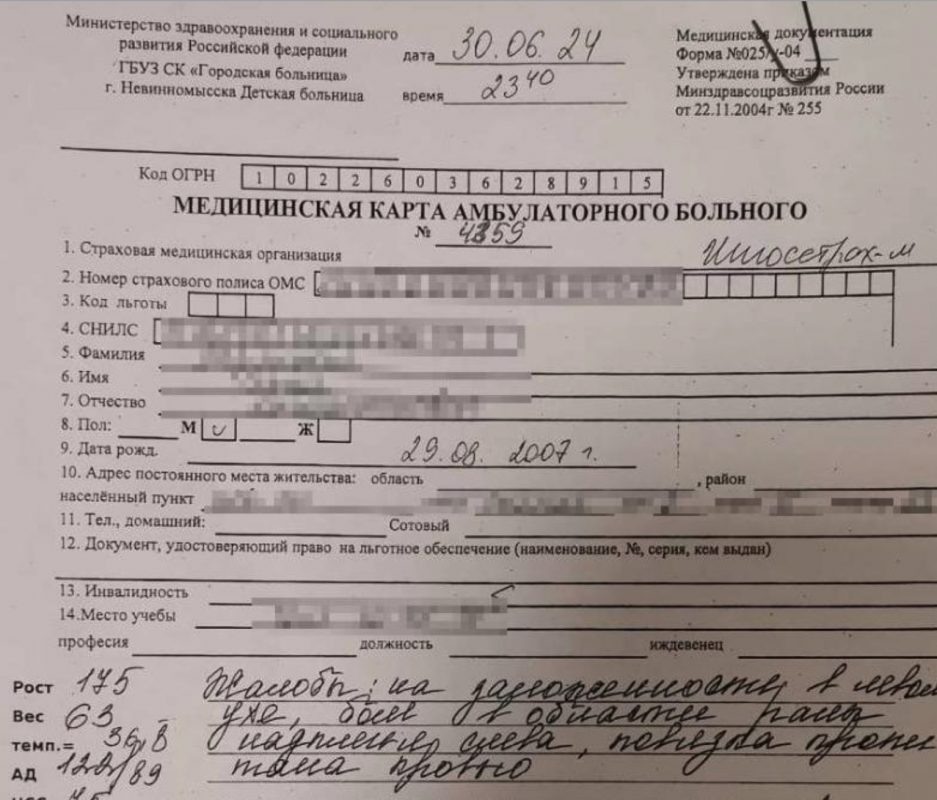 Министерство здравоохранения и социального
развития Российской федерации
ГБУЗ СК «Городская больница»
г. Невинномысска Детская больница
дата 30.06.24
время 23 40
Медицинская документация
Форма №025/у-04
Утверждена приказом
Минздравсоцразвития России
от 22.11.2004г № 255
Код ОГРН 1 0 2 2 6 0 3 6 2 8 9 1 5
МЕДИЦИНСКАЯ КАРТА АМБУЛАТОРНОГО БОЛЬНОГО
№ 4359
1. Страховая медицинская организация Ингосстрах-м
2. Номер страхового полиса ОМС
3. Код льготы
4. СНИЛС
5. Фамилия
6. Имя
7. Отчество
8. Пол: М Ж
9. Дата рожд. 29.08. 2007 г.
10. Адрес постоянного места жительства: область , район
населённый пункт
11. Тел., домашний: Сотовый
12. Документ, удостоверяющий право на льготное обеспечение (наименование, №, серия, кем выдан)
13. Инвалидность
14.Место учебы
професия должность иждевенец
Рост 175 Жалобы: на заложенность в левом
Вес 63 ухе, боли в области раны
темп.= 36,8 слева, повязка
АД 122/89 кровью